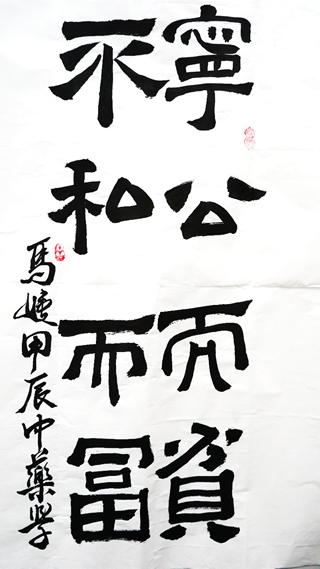 寧公而貧
不私而富
馬婕甲辰中藥学